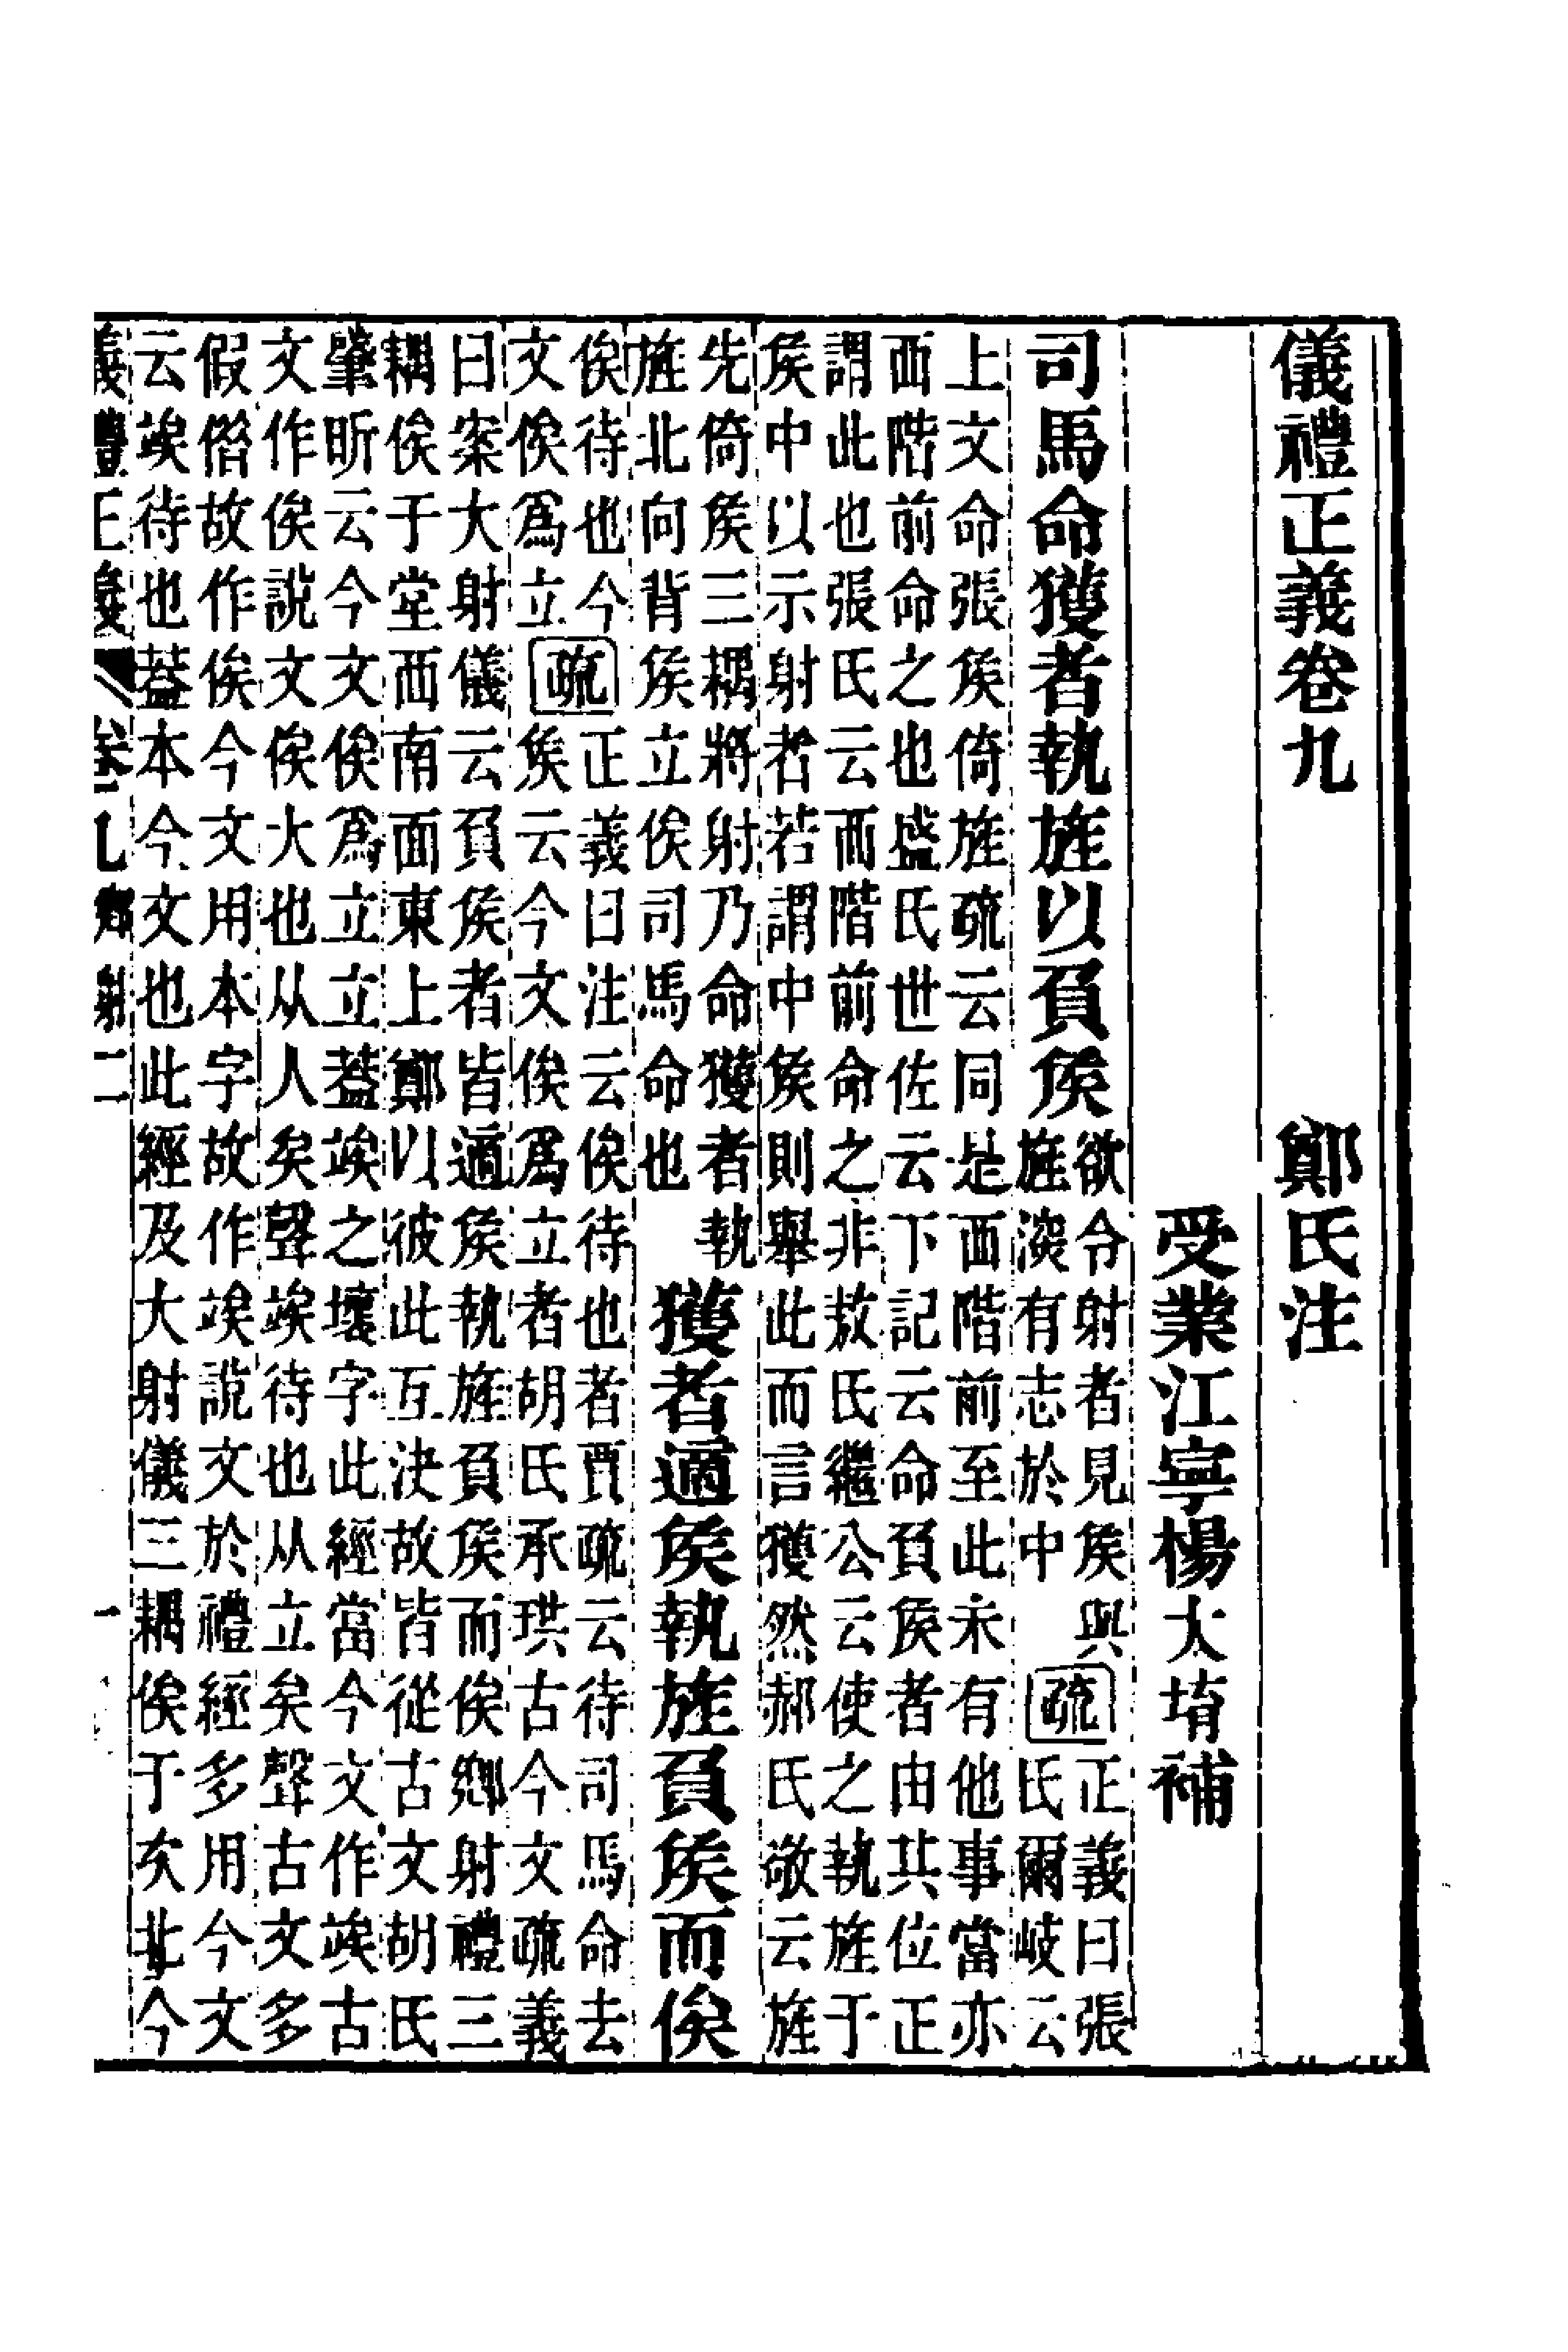 儀禮正義卷九　鄭氏注
受業江寧楊大堉補
司馬命獲者執旌以負矦
欲令射者見矦與
旌深有志於中
疏
正義曰張
氏爾岐云
上文命張矦倚旌疏云同是西階前至此未有他事當亦
西階前命之也盛氏世佐云下記云命負矦者由其位正
謂此也張氏云西階前命之非敖氏繼公云使之執旌于
矦中以示射者若謂中矦則舉此而言獲然郝氏敬云旌
先倚矦三耦將射乃命獲者執
旌北向背矦立俟司馬命也
獲者適矦執旌負矦而俟
俟待也今
文俟爲立
疏
正義曰注云俟待也者賈疏云待司馬命去
矦云今文俟爲立者胡氏承珙古今文疏義
曰案大射儀云負矦者皆適矦執旌負矦而俟鄉射禮三
耦俟于堂西南面東上鄭以彼此互決故皆從古文胡氏
肇昕云今文俟爲立立蓋竢之壞字此經當今文作竢古
文作俟說文俟大也从人矣聲竢待也从立矣聲古文多
假借故作俟今文用本字故作竢說文於禮經多用今文
云竢待也蓋本今文也此經及大射儀三耦俟于次北今
儀禮正義　卷九　鄉射二　一